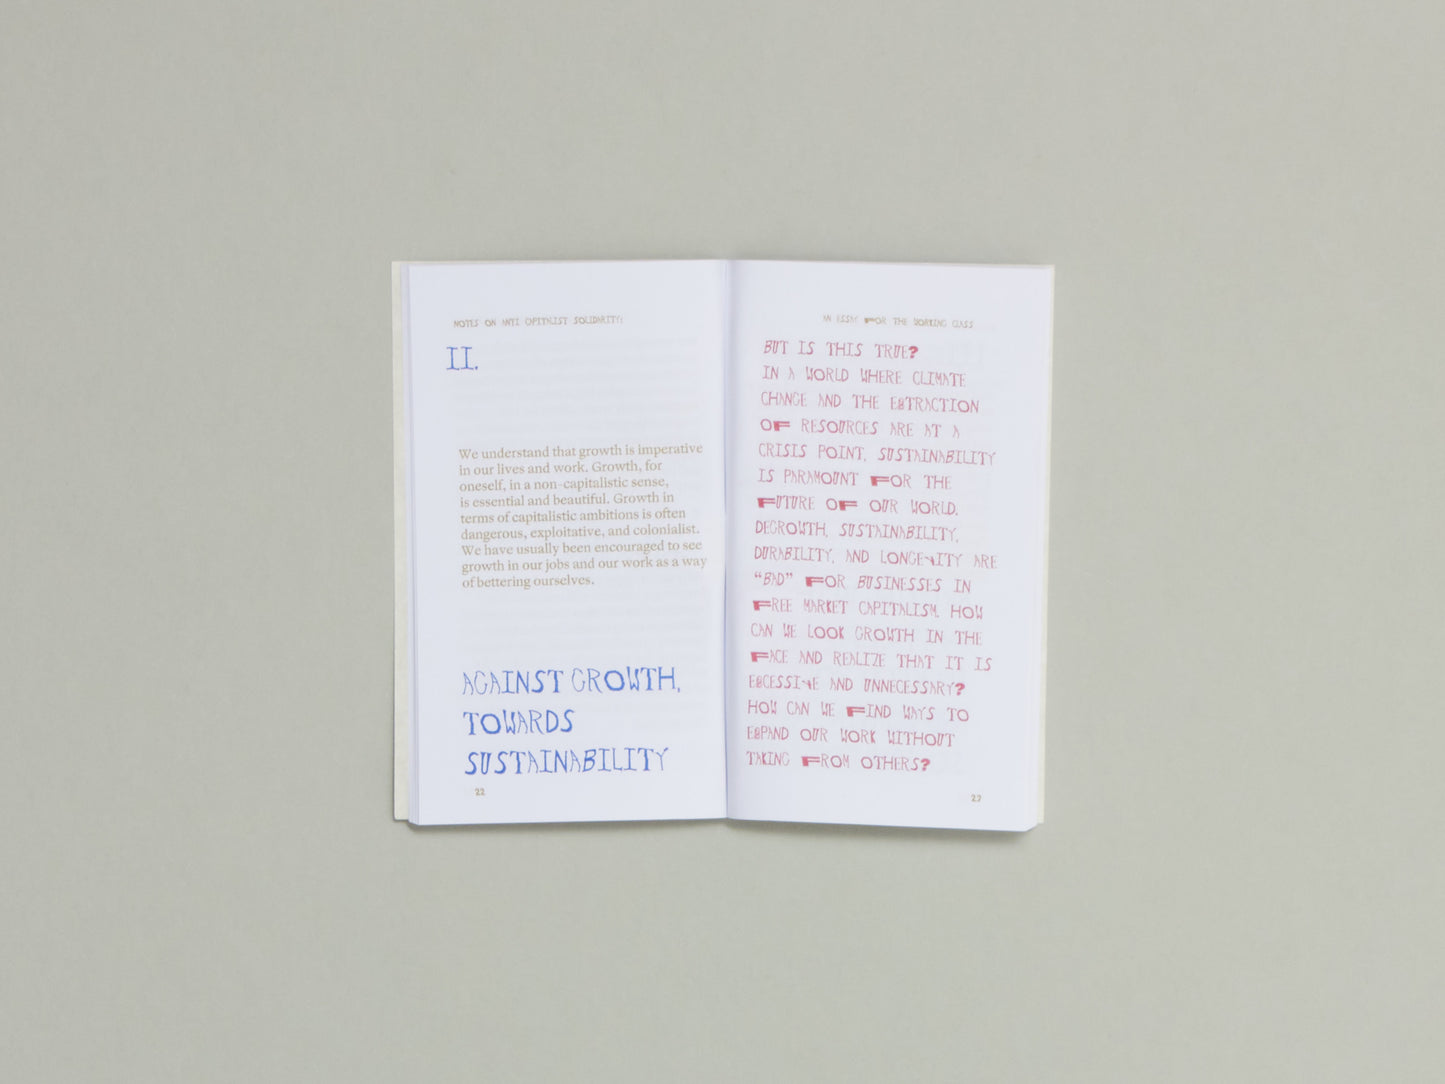 NOTES ON ANTI CAPITALIST SOLIDARITY:
II.
We understand that growth is imperative
in our lives and work. Growth, for
oneself, in a non-capitalistic sense,
is essential and beautiful. Growth in
terms of capitalistic ambitions is often
dangerous, exploitative, and colonialist.
We have usually been encouraged to see
growth in our jobs and our work as a way
of bettering ourselves.
AGAINST GROWTH,
TOWARDS
SUSTAINABILITY
22
AN ESSAY FOR THE WORKING CLASS
BUT IS THIS TRUE?
IN A WORLD WHERE CLIMATE
CHANGE AND THE EXTRACTION
OF RESOURCES ARE AT A
CRISIS POINT, SUSTAINABILITY
IS PARAMOUNT FOR THE
FUTURE OF OUR WORLD.
DEGROWTH, SUSTAINABILITY,
DURABILITY, AND LONGEVITY ARE
“BAD” FOR BUSINESSES IN
FREE MARKET CAPITALISM. HOW
CAN WE LOOK GROWTH IN THE
FACE AND REALIZE THAT IT IS
EXCESSIVE AND UNNECESSARY?
HOW CAN WE FIND WAYS TO
EXPAND OUR WORK WITHOUT
TAKING FROM OTHERS?